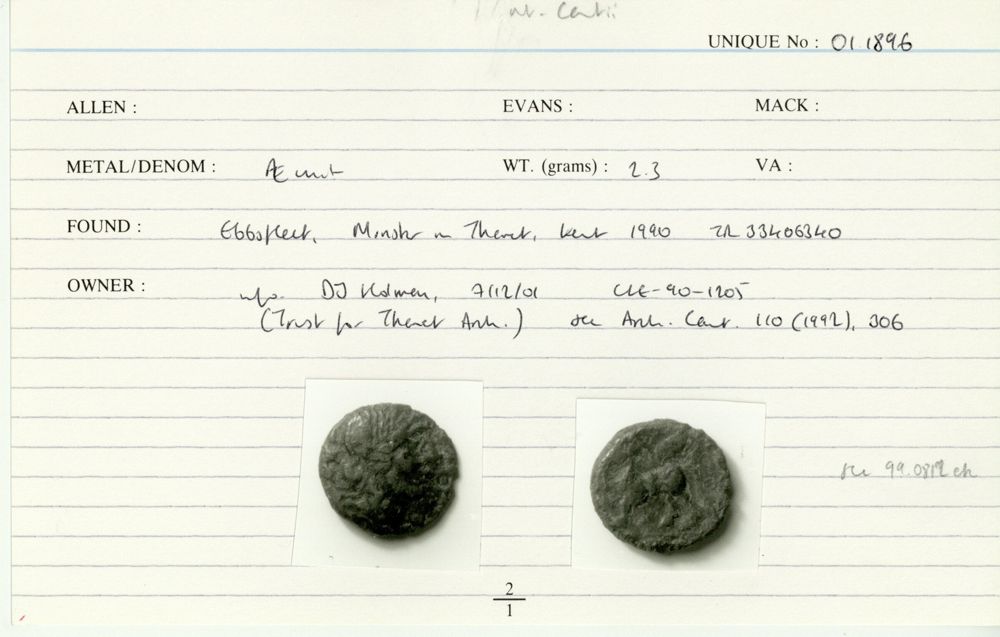 UNIQUE No : 01.1896
ALLEN : EVANS : MACK :
METAL/DENOM : Æ unit WT. (grams) : 2.3 VA :
FOUND : Ebbsfleet, Minster in Thanet, Kent 1990 TR 33406340
OWNER : info. DJ Holman, 7/12/01 CLE-90-1205
(Trust for Thanet Arch.) see Arch. Cant. 110 (1992), 306
see 99.0812
2
1